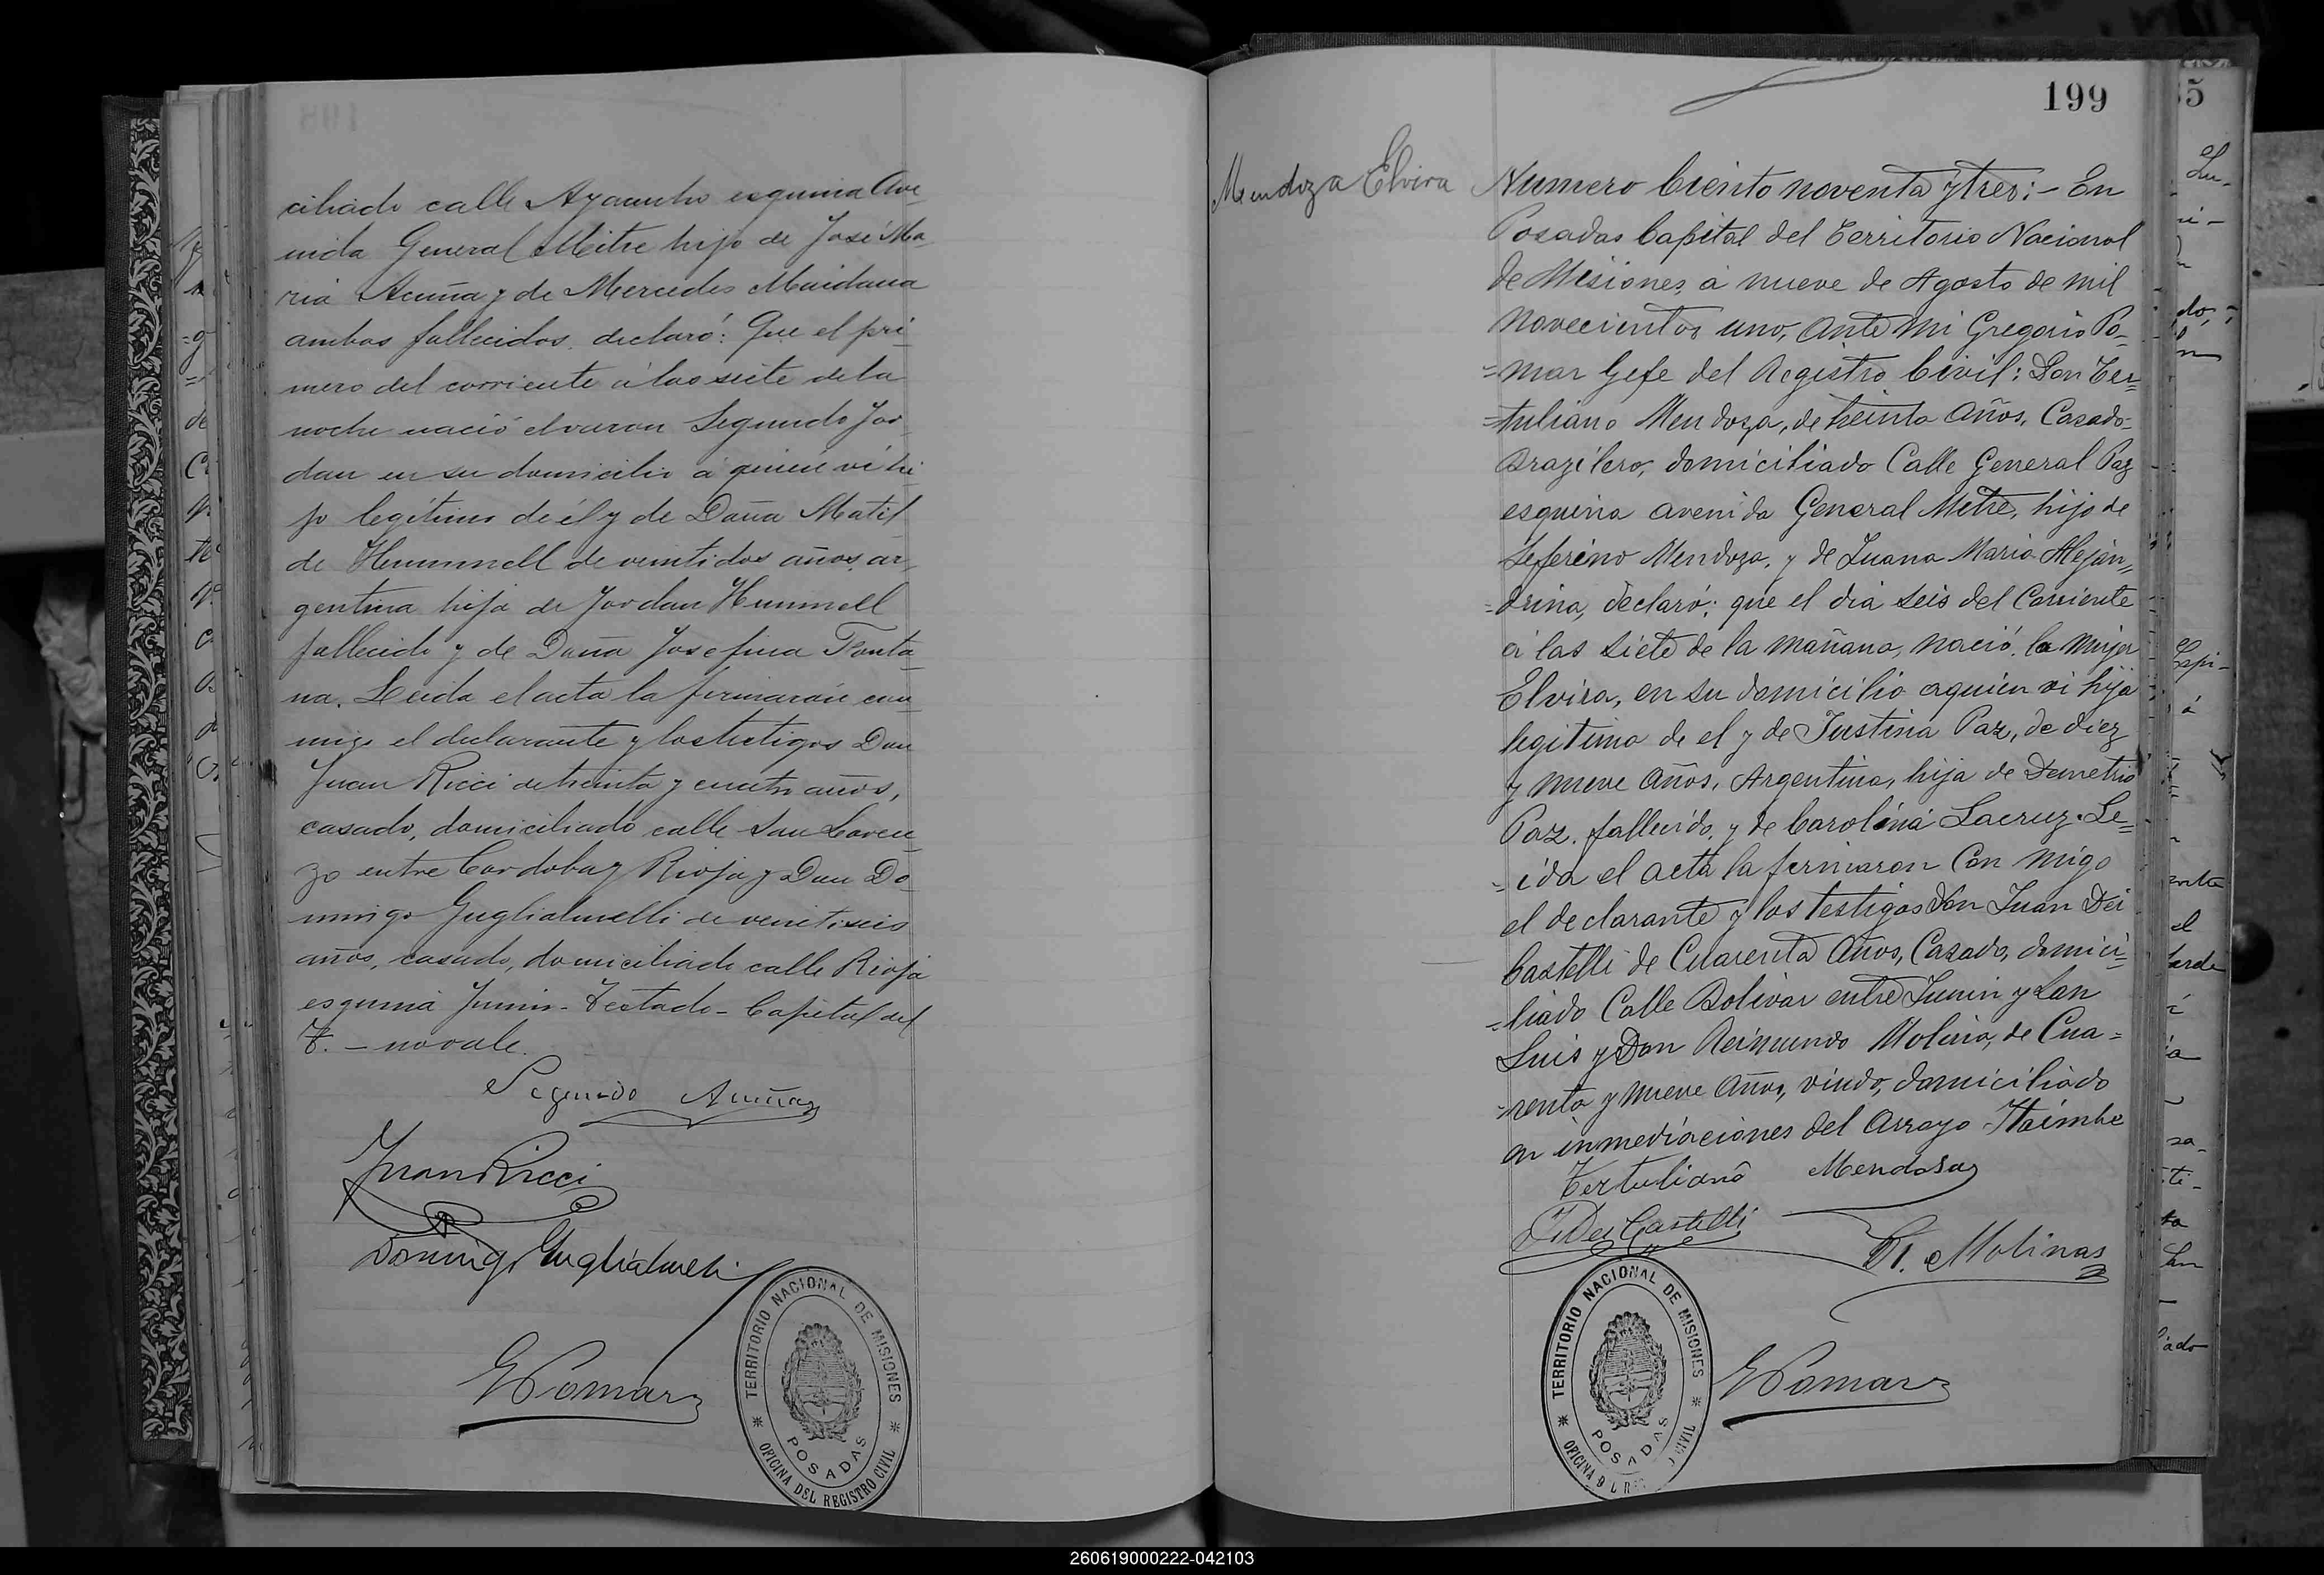 ciliado calle Ayacucho esquina Ave
nida General Mitre hijo de José Ma
ria Acuña y de Mercedes Maidana
ambos fallecidos. declaró: Que el pri
mero del corriente á las siete de la
noche nació el varon Segundo Jor
dan en su domicilio á quien ví hi
jo legítimo de él y de Doña Matil
de Hummell de veintidos años, ar
gentina hija de Jordan Hummell
fallecido y de Doña Josefina Fonta
na. Leida el acta la firmaron con
migo el declarante y los testigos Don
Juan Ricci de treinta y cuatro años,
casado, domiciliado calle San Loren
zo entre Cordoba y Rioja y Don Do
mingo Guglialmelli de veintiseis
años, casado, domiciliado calle Rioja
esquina Junin - Testado - Capital del
T. - no vale.
Segundo Acuña
Juan Ricci
Domingo Guglialmelli
G Pomar
TERRITORIO NACIONAL DE MISIONES
POSADAS
OFICINA DEL REGISTRO CIVIL
199
Mendoza Elvira
Numero Ciento noventa y tres:- En
Posadas Capital del Territorio Nacional
de Misiones, á nueve de Agosto de mil
novecientos uno, Ante mi Gregorio Po-
=mar Gefe del Registro Civil: Don Ter=
=tuliano Mendoza, de treinta años, Casado-
Brazilero, domiciliado Calle General Paz
esquina avenida General Metre, hijo de
Seferino Mendoza, y de Juana Maria Aleján=
=drina, declaró; que el dia seis del Corriente
á las siete de la mañana, nació, la mujer
Elvira, en su domicilio aquien vi hija
legitima de el y de Justina Paz, de diez
y nueve años, Argentina, hija de Demetrio
Paz. fallecido, y de Carolina Lacruz. Le=
=ida el acta la firmaron Con migo
el declarante y los testigos Don Juan Dei
Castelli de Cuarenta Años, Casado, domici=
=liado Calle Bolivar entre Junin y San
Luis y Don Reimundo Molina, de Cua=
=renta y nueve Años, viudo, domiciliado
en inmediaciones del Arroyo Itaimbe
Tertuliano Mendosa
J. Dei Castelli
R. Molinas
TERRITORIO NACIONAL DE MISIONES
POSADAS
CIVIL
G Pomar
260619000222-042103